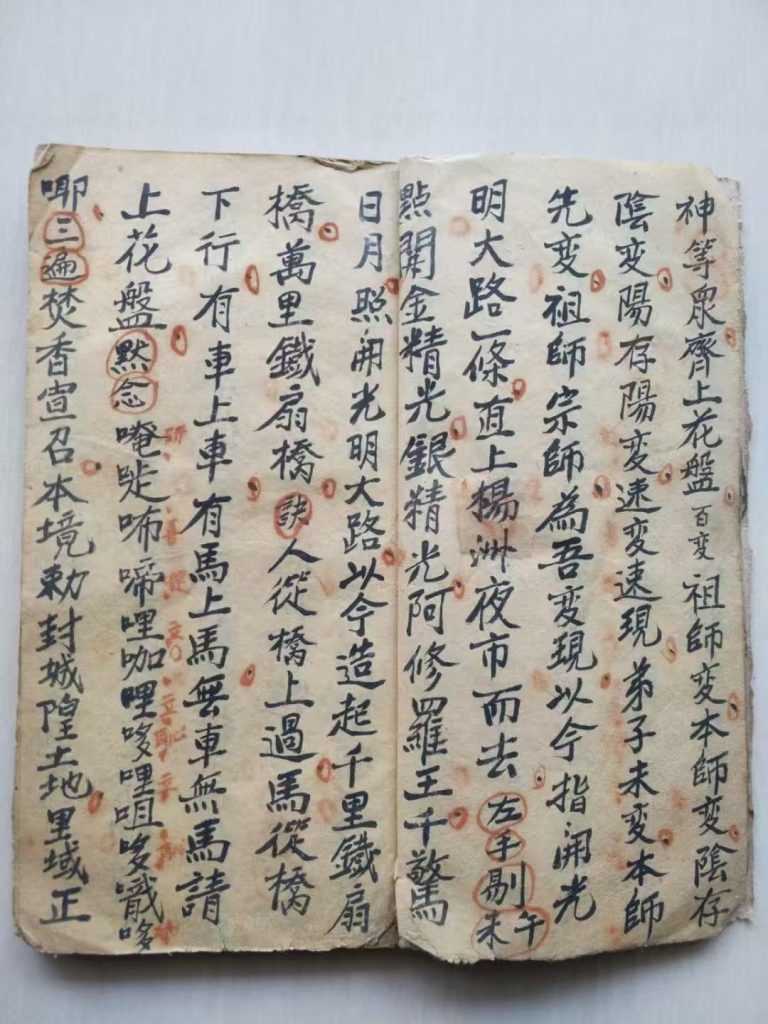 神等眾齊上花盤百变祖師变本師变陰存
陰变陽存陽变速变速現弟子未变本師
先变祖師宗師為吾变現以今指開光
明大路一條直上楊洲夜市而去左手剔午未
點開金精光銀精光阿修羅王千驚
日月照開光明大路以今造起千里鐵扇
橋萬里鐵扇橋訣人從橋上過馬從橋
下行有車上車有馬上馬無車無馬請
上花盤默念唵𠯗咘啼哩咖哩哆哩咀哆囎哆
唧三遍焚香宣召本境勅封城隍土地里域正